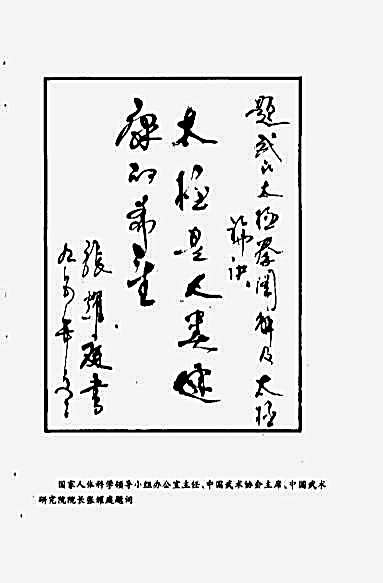 题武氏太极拳图解及太极
诀
太极是人类健
康的希望
張耀庭書
国家人体科学领导小组办公室主任、中国武术协会主席、中国武术
研究院院长张耀庭题词